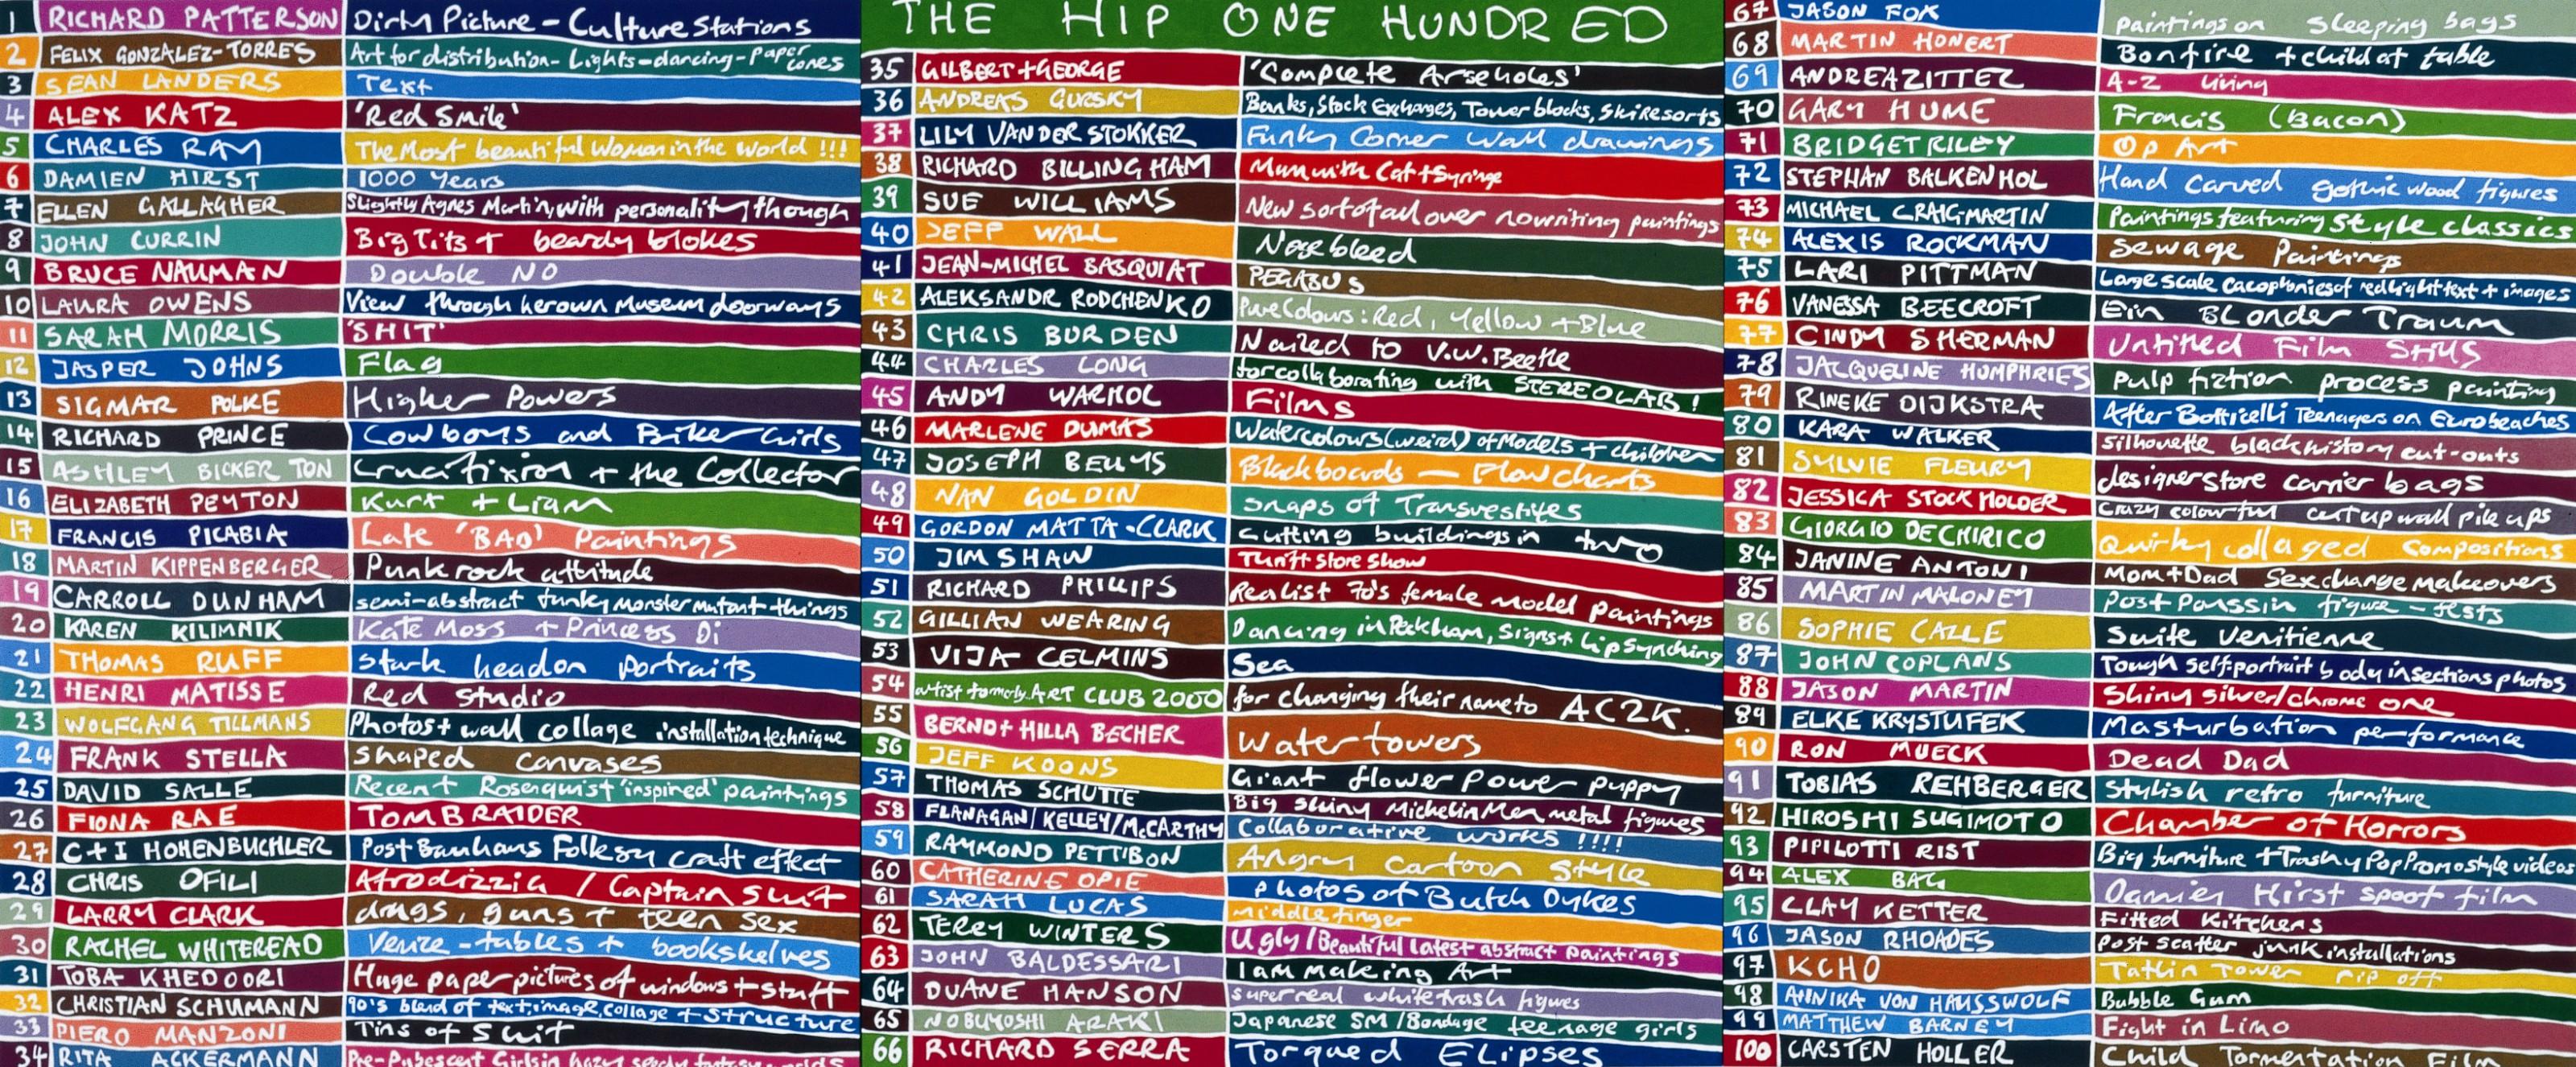 1 RICHARD PATTERSON Dirty Picture - Culture Stations
2 FELIX GONZALEZ-TORRES Art for distribution - Lights - dancing - Paper cones
3 SEAN LANDERS Text
4 ALEX KATZ 'Red Smile'
5 CHARLES RAY The Most beautiful Woman in the world !!!
6 DAMIEN HIRST 1000 Years
7 ELLEN GALLAGHER Slightly Agnes Martin, with personality though
8 JOHN CURRIN Big Tits + beardy blokes
9 BRUCE NAUMAN Double NO
10 LAURA OWENS View through her own Museum doorways
11 SARAH MORRIS 'SHIT'
12 JASPER JOHNS Flag
13 SIGMAR POLKE Higher Powers
14 RICHARD PRINCE Cowboys and Biker Girls
15 ASHLEY BICKERTON Crucifixion + the Collector
16 ELIZABETH PEYTON Kurt + Liam
17 FRANCIS PICABIA Late 'BAD' Paintings
18 MARTIN KIPPENBERGER Punk rock attitude
19 CARROLL DUNHAM semi-abstract funky monster mutant things
20 KAREN KILIMNIK Kate Moss + Princess Di
21 THOMAS RUFF Stark headon portraits
22 HENRI MATISSE Red Studio
23 WOLFGANG TILLMANS Photos + wall collage installation technique
24 FRANK STELLA Shaped canvases
25 DAVID SALLE Recent Rosenquist 'inspired' paintings
26 FIONA RAE TOMB RAIDER
27 C + I HOHENBUCHLER Post Bauhaus Folksy craft effect
28 CHRIS OFILI Afrodizzia / Captain Shit
29 LARRY CLARK drugs, guns + teen sex
30 RACHEL WHITEREAD Venice - tables + bookshelves
31 TOBA KHEDOORI Huge paper pictures of windows + stuff
32 CHRISTIAN SCHUMANN 90's blend of text, image, collage + structure
33 PIERO MANZONI Tins of Shit
34 RITA ACKERMANN Pre-Pubescent Girls in hazy
THE HIP ONE HUNDRED
35 GILBERT + GEORGE 'Complete Arseholes'
36 ANDREAS GURSKY Banks, Stock Exchanges, Tower blocks, Ski Resorts
37 LILY VAN DER STOKKER Funky Corner Wall drawings
38 RICHARD BILLINGHAM Mum with Cat + Syringe
39 SUE WILLIAMS New sort of all over no writing paintings
40 JEFF WALL Nosebleed
41 JEAN-MICHEL BASQUIAT PEGASUS
42 ALEKSANDR RODCHENKO Pure Colours: Red, Yellow + Blue
43 CHRIS BURDEN Nailed to V.W. Beetle
44 CHARLES LONG for collaborating with STEREOLAB!
45 ANDY WARHOL Films
46 MARLENE DUMAS Watercolours (weird) of Models + children
47 JOSEPH BEUYS Blackboards - Flowcharts
48 NAN GOLDIN Snaps of Transvestites
49 GORDON MATTA-CLARK Cutting buildings in two
50 JIM SHAW Thrift Store Show
51 RICHARD PHILLIPS Realist 70's female model paintings
52 GILLIAN WEARING Dancing in Peckham, Signs + Lip Synching
53 VIJA CELMINS Sea
54 artist formerly ART CLUB 2000 for changing their name to AC2K.
55 BERND + HILLA BECHER Water towers
56 JEFF KOONS Giant flower power puppy
57 THOMAS SCHUTTE Big shiny Michelin Men metal figures
58 FLANAGAN/KELLEY/McCARTHY Collaborative works !!!!
59 RAYMOND PETTIBON Angry Cartoon Style
60 CATHERINE OPIE Photos of Butch Dykes
61 SARAH LUCAS middle finger
62 TERRY WINTERS Ugly/Beautiful latest abstract paintings
63 JOHN BALDESSARI I am making Art
64 DUANE HANSON super real white trash figures
65 NOBUYOSHI ARAKI Japanese SM/Bondage teenage girls
66 RICHARD SERRA Torqued Elipses
67 JASON FOX Paintings on Sleeping bags
68 MARTIN HONERT Bonfire + child at table
69 ANDREA ZITTEL A-Z living
70 GARY HUME Francis (Bacon)
71 BRIDGET RILEY Op Art
72 STEPHAN BALKENHOL Hand Carved gothic wood figures
73 MICHAEL CRAIG-MARTIN Paintings featuring style classics
74 ALEXIS ROCKMAN Sewage Paintings
75 LARI PITTMAN Large scale cacophonies of red light text + images
76 VANESSA BEECROFT Ein Blonder Traum
77 CINDY SHERMAN Untitled Film Stills
78 JACQUELINE HUMPHRIES Pulp fiction process painting
79 RINEKE DIJKSTRA After Botticelli Teenagers on Euro beaches
80 KARA WALKER Silhouette black history cut-outs
81 SYLVIE FLEURY designer store carrier bags
82 JESSICA STOCKHOLDER Crazy colourful cut up wall pile ups
83 GIORGIO DE CHIRICO Quirky collaged compositions
84 JANINE ANTONI Mom + Dad Sex change makeovers
85 MARTIN MALONEY Post Poussin figure - fests
86 SOPHIE CALLE Suite Venitienne
87 JOHN COPLANS Tough self-portrait body in sections photos
88 JASON MARTIN Shiny silver/chrome one
89 ELKE KRYSTUFEK Masturbation performance
90 RON MUECK Dead Dad
91 TOBIAS REHBERGER Stylish retro furniture
92 HIROSHI SUGIMOTO Chamber of Horrors
93 PIPILOTTI RIST Big furniture + Trashy Pop Promo style videos
94 ALEX BAG Damien Hirst spoof film
95 CLAY KETTER Fitted Kitchens
96 JASON RHOADES Post scatter junk installations
97 KCHO Tatlin Tower rip off
98 ANNIKA VON HAUSSWOLF Bubble Gum
99 MATTHEW BARNEY Fight in Limo
100 CARSTEN HOLLER Child Tormentation Film